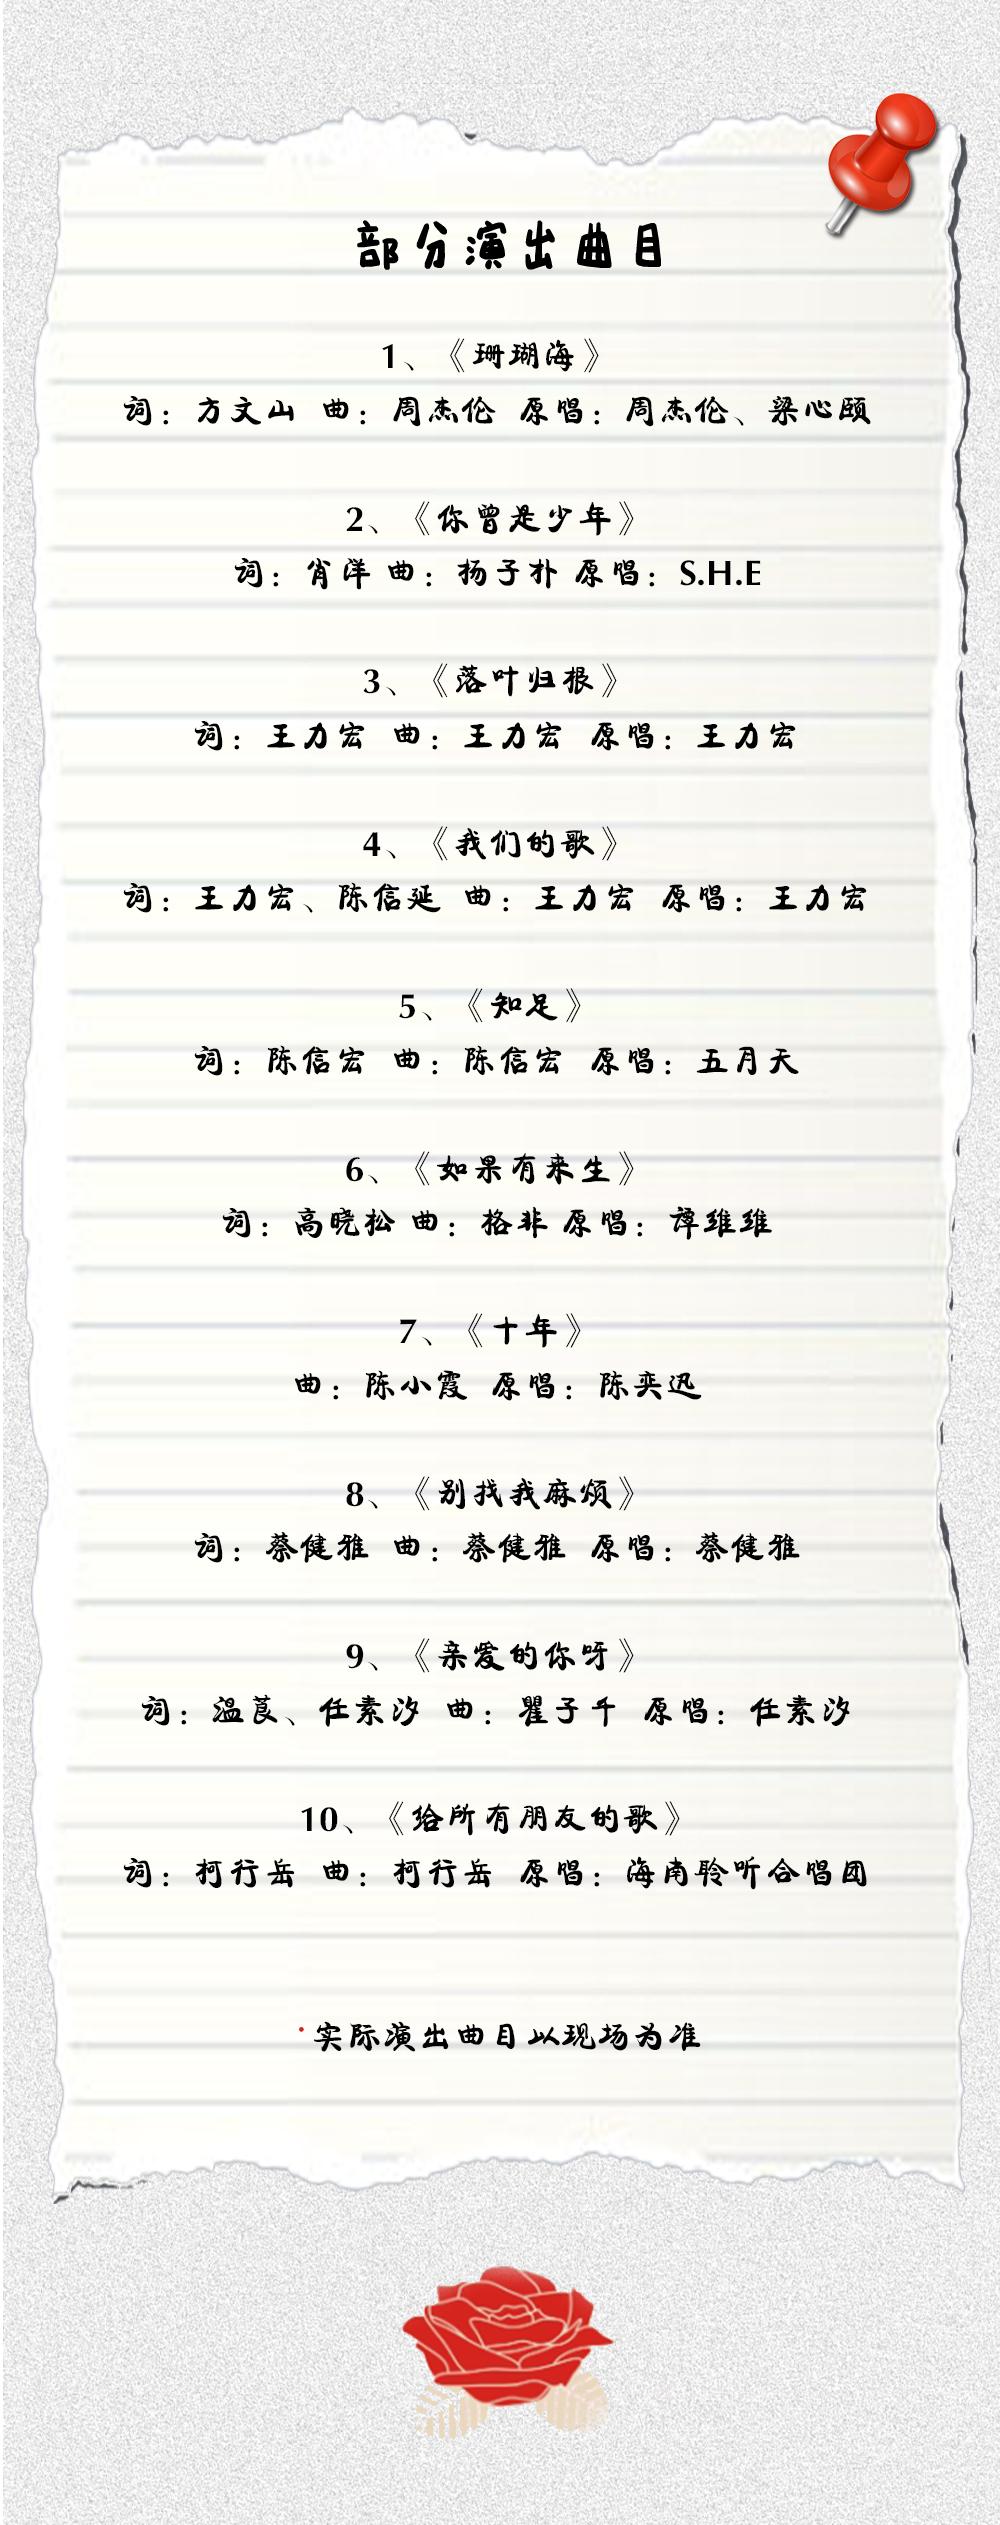 部分演出曲目
1、《珊瑚海》
词：方文山 曲：周杰伦 原唱：周杰伦、梁心颐
2、《你曾是少年》
词：肖洋 曲：扬子朴 原唱：S.H.E
3、《落叶归根》
词：王力宏 曲：王力宏 原唱：王力宏
4、《我们的歌》
词：王力宏、陈信延 曲：王力宏 原唱：王力宏
5、《知足》
词：陈信宏 曲：陈信宏 原唱：五月天
6、《如果有来生》
词：高晓松 曲：格非 原唱：谭维维
7、《十年》
曲：陈小霞 原唱：陈奕迅
8、《别找我麻烦》
词：蔡健雅 曲：蔡健雅 原唱：蔡健雅
9、《亲爱的你呀》
词：温莨、任素汐 曲：瞿子千 原唱：任素汐
10、《给所有朋友的歌》
词：柯行岳 曲：柯行岳 原唱：海南聆听合唱团
实际演出曲目以现场为准